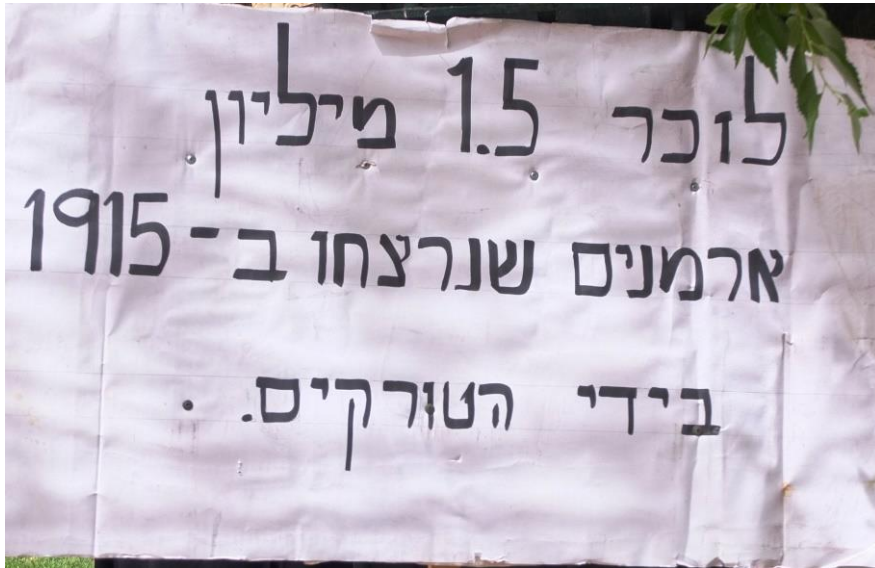 לזכר 1.5 מיליון
ארמנים שנרצחו ב-1915
בידי הטורקים.